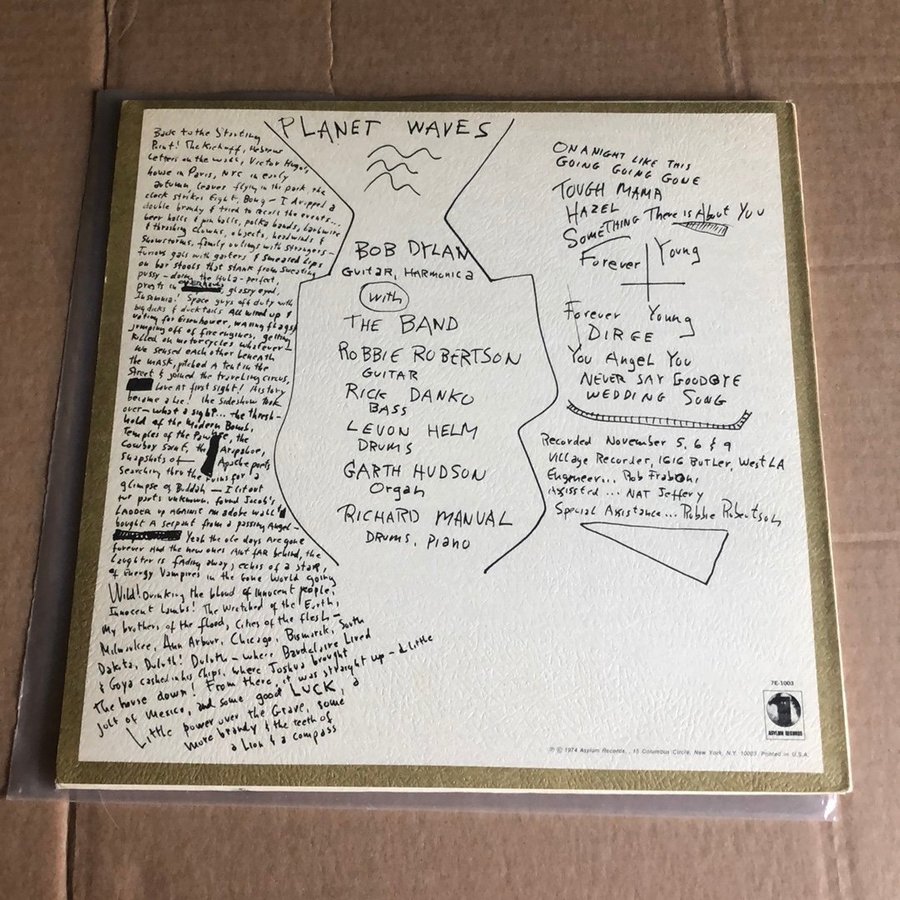 Back to the Starting
Point! The Kickoff, Hebrew
Letters on the wall, Victor Hugo's
house in Paris, NYC in early
autumn, leaves flying in the park, the
clock strikes Eight, Bong — I dropped a
double brandy & tried to recall the events...
beer halls & pin balls, polka bands, barbwire
& thrashing clowns, objects, headwinds &
snowstorms, family outings with strangers —
Furious gals with garters & smeared Lips
on bar stools that stank from sweating
pussy — doing the Hula — perfect,
priests in glossy eyed,
Insomnia! Space guys off duty with
big dicks & ducktails All wired up &
voting for Eisenhower, waving flags &
jumping off of fire engines, getting
killed on motorcycles whatever —
We sensed each other beneath
the mask, pitched a tent in the
Street & joined the traveling circus,
Love at first sight! History
became a Lie! the sideshow took
over — what a sight... the thresh-
hold of the Modern Bomb,
Temples of the Pawnee, the
Cowboy saint, the Arapahoe,
snapshots of Apache poets
searching thru the ruins for a
glimpse of Buddah — I lit out
for parts unknown, found Jacob's
LADDER up AGAINST an adobe wall &
bought A serpent from a passing Angel —
Yeah the ole days Are gone
forever And the new ones Aint fAR behind, the
Laughter is fading away, echos of a staR,
of Energy Vampires in the Gone World going
Wild! Drinking the blood of innocent people,
Innocent Lambs! The Wretched of the Earth,
My brothers of the flood, Cities of the flesh —
Milwaukee, Ann Arbour, Chicago, Bismarck, South
Dakota, Duluth! Duluth — where Baudelaire Lived
& Goya cashed in his Chips, where Joshua brought
the house down! From there, it was straight up — a Little
jolt of Mexico, and some good LUCK, a
Little power over the Grave, some
more brandy & the teeth of
a Lion & a compass
PLANET WAVES
BOB DYLAN
GUITAR, HARMONICA
With
THE BAND
ROBBIE ROBERTSON
GUITAR
RICK DANKO
BASS
LEVON HELM
DRUMS
GARTH HUDSON
Organ
RICHARD MANUAL
DRUMS, Piano
ON A NIGHT LIKE THIS
GOING GOING GONE
TOUGH MAMA
HAZEL
SOMETHING There is About You
Forever Young
Forever Young
DIRGE
You Angel You
NEVER SAY GOODBYE
WEDDING SONG
Recorded November 5, 6 & 9
Village Recorder, 1616 BUTLER, West LA
Engineer... Rob Fraboni
Assisted... NAT Jeffery
Special Assistance... Robbie Robertson
7E-1003
ASYLUM RECORDS
℗ © 1974 Asylum Records, 15 Columbus Circle, New York, N.Y. 10023 Printed in U.S.A.